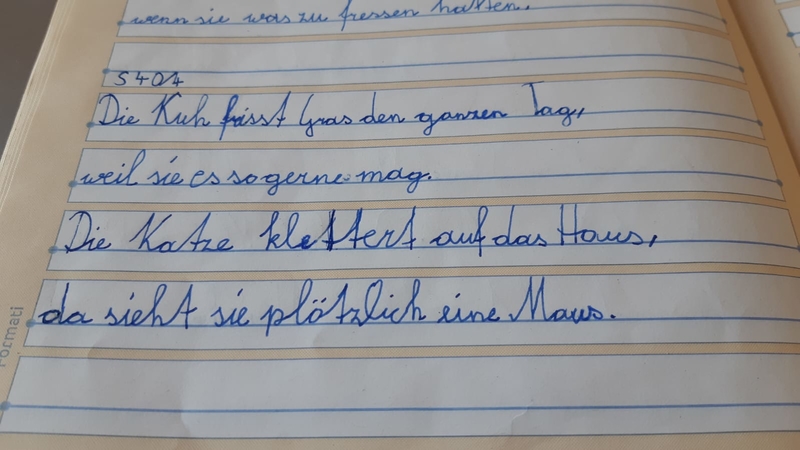 wenn sie was zu fressen hatten.
5404
Die Kuh frisst Gras den ganzen Tag,
weil sie es so gerne mag.
Die Katze klettert auf das Haus,
da sieht sie plötzlich eine Maus.
Formati